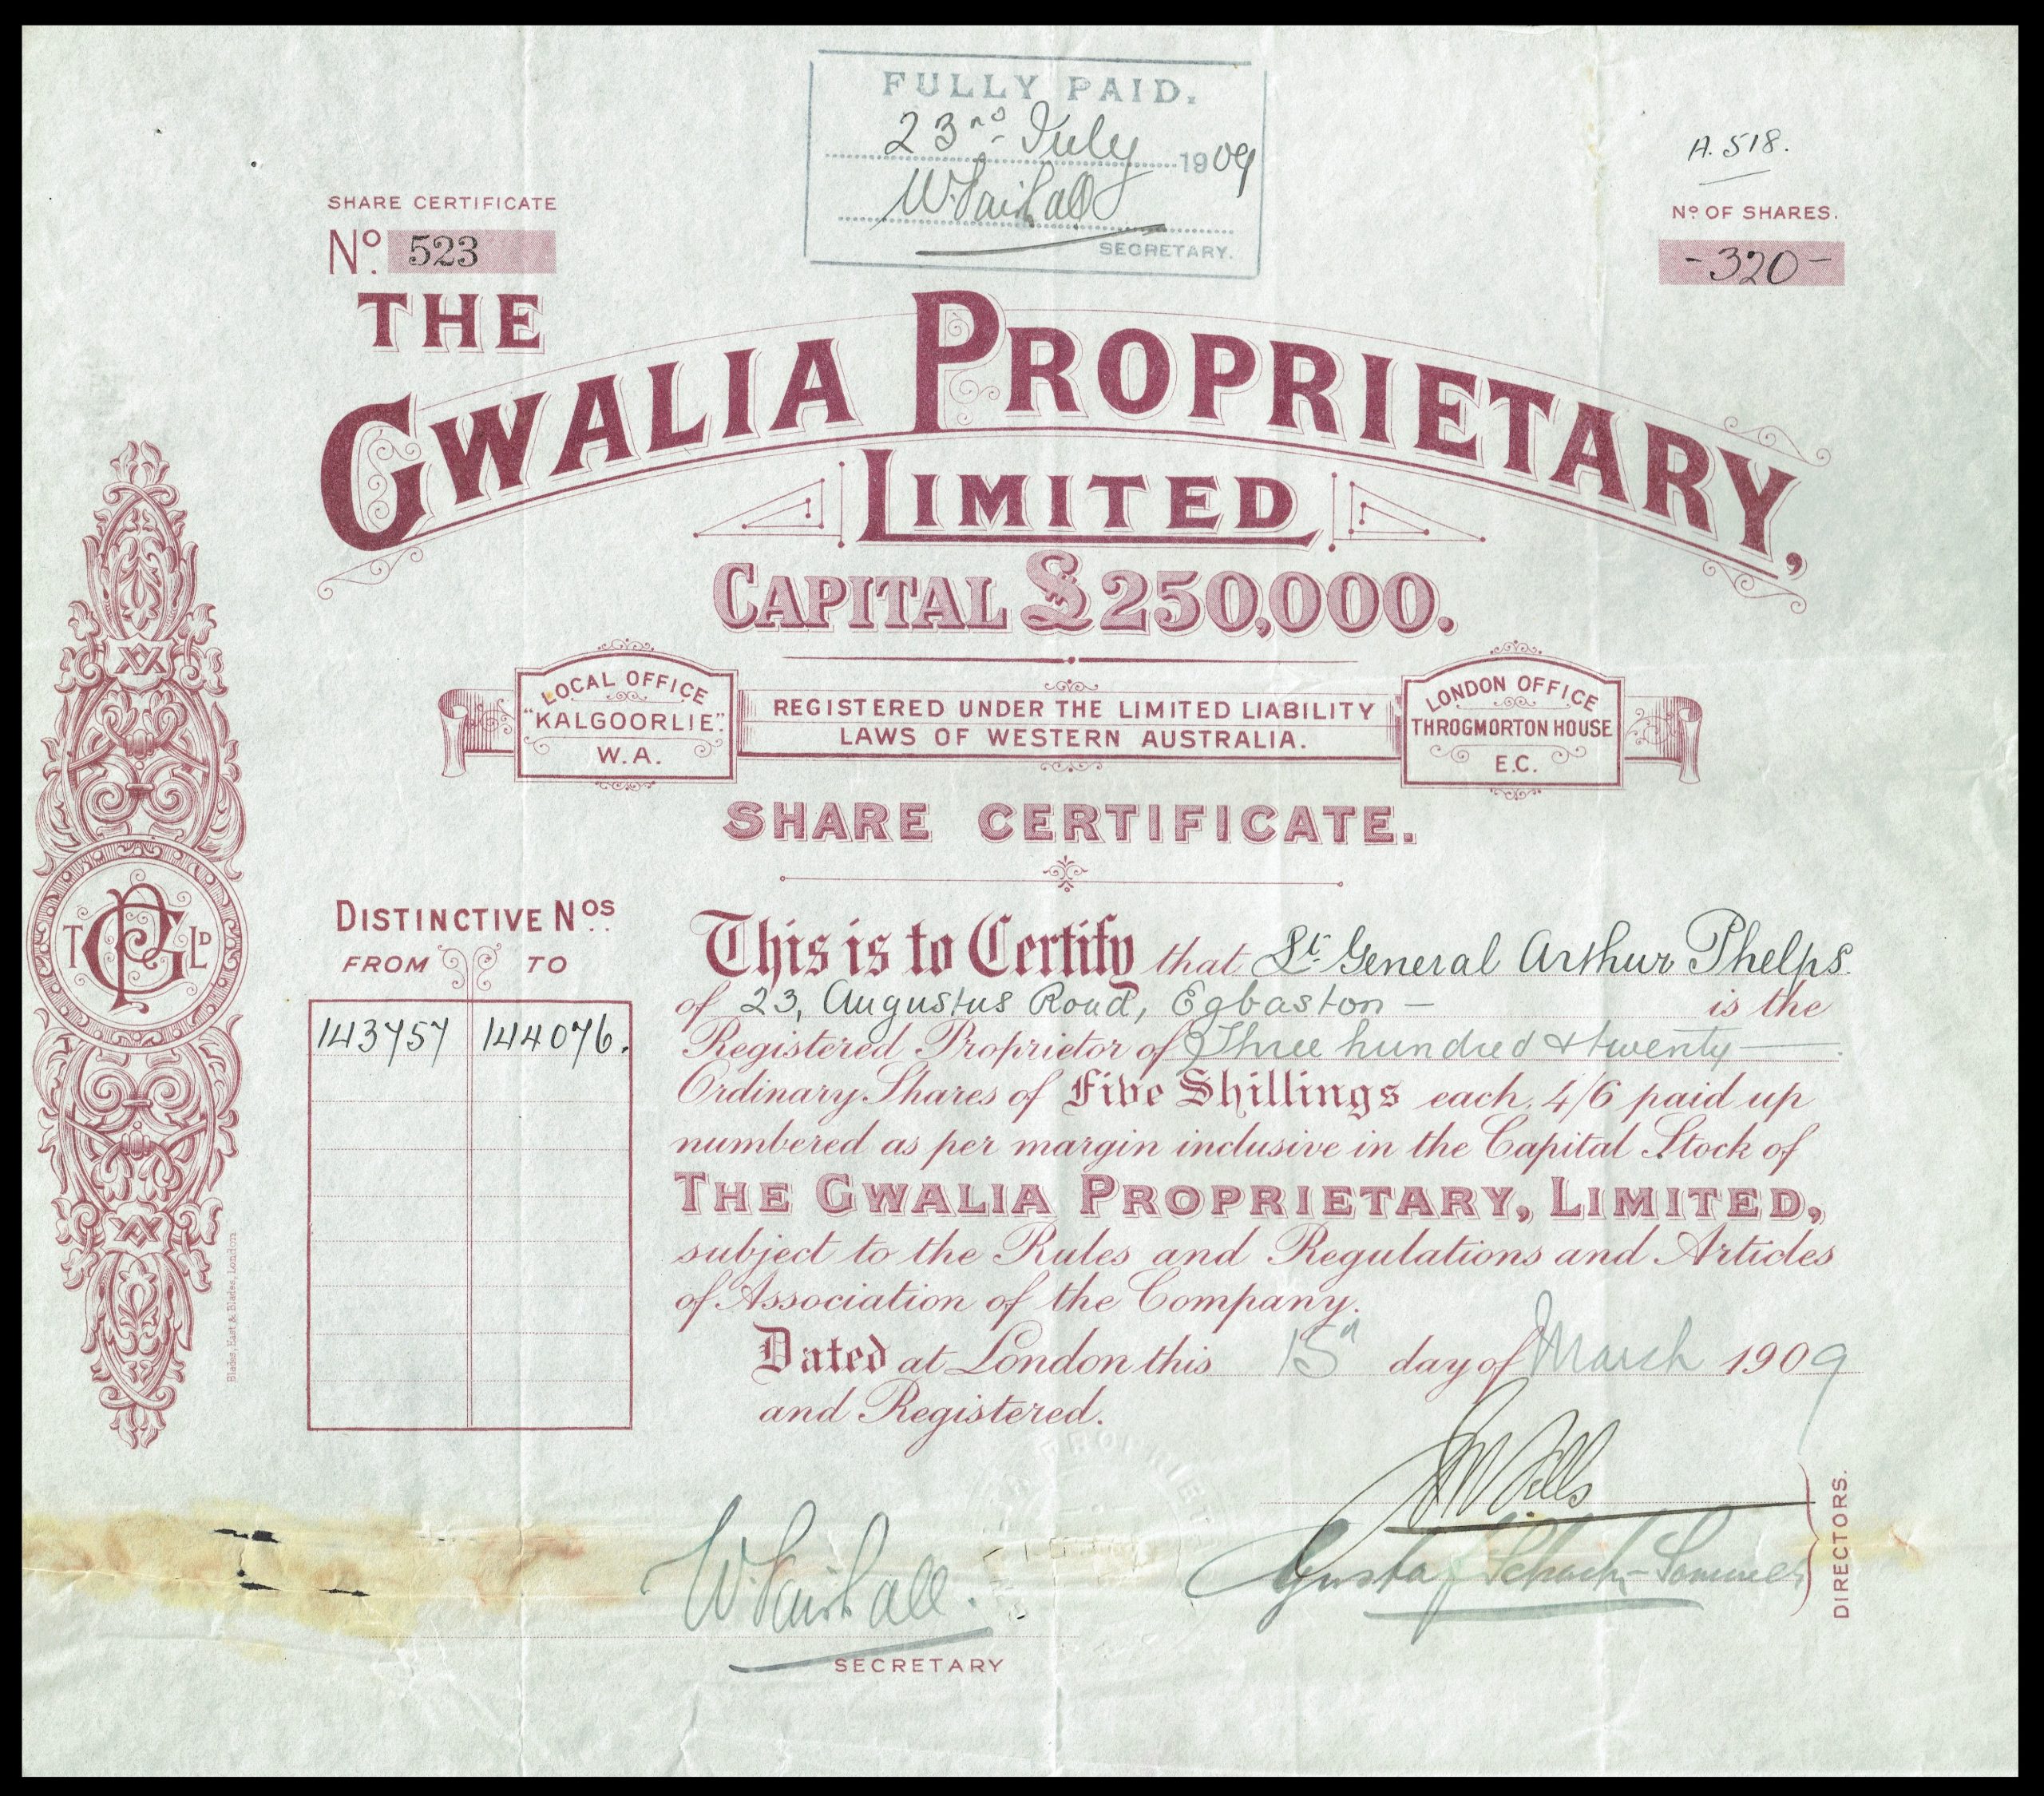 FULLY PAID.
23rd July 1909
W. Fairhall
SECRETARY.
A. 518.
SHARE CERTIFICATE
No. 523
No OF SHARES.
- 320 -
THE
GWALIA PROPRIETARY,
LIMITED
CAPITAL £250,000.
LOCAL OFFICE
"KALGOORLIE".
W.A.
REGISTERED UNDER THE LIMITED LIABILITY
LAWS OF WESTERN AUSTRALIA.
LONDON OFFICE
THROGMORTON HOUSE
E.C.
SHARE CERTIFICATE.
T GP LD
DISTINCTIVE NOS.
FROM TO
143757 144076.
This is to Certify that Lt. General Arthur Phelps.
of 23, Augustus Road, Egbaston — is the
Registered Proprietor of Three hundred & twenty —
Ordinary Shares of Five Shillings each, 4/6 paid up
numbered as per margin inclusive in the Capital Stock of
THE GWALIA PROPRIETARY, LIMITED,
subject to the Rules and Regulations and Articles
of Association of the Company.
Dated at London this 15th day of March 1909
and Registered.
Blades, East & Blades, London
Gustaf Schach-Sommer
DIRECTORS.
W. Fairhall.
SECRETARY